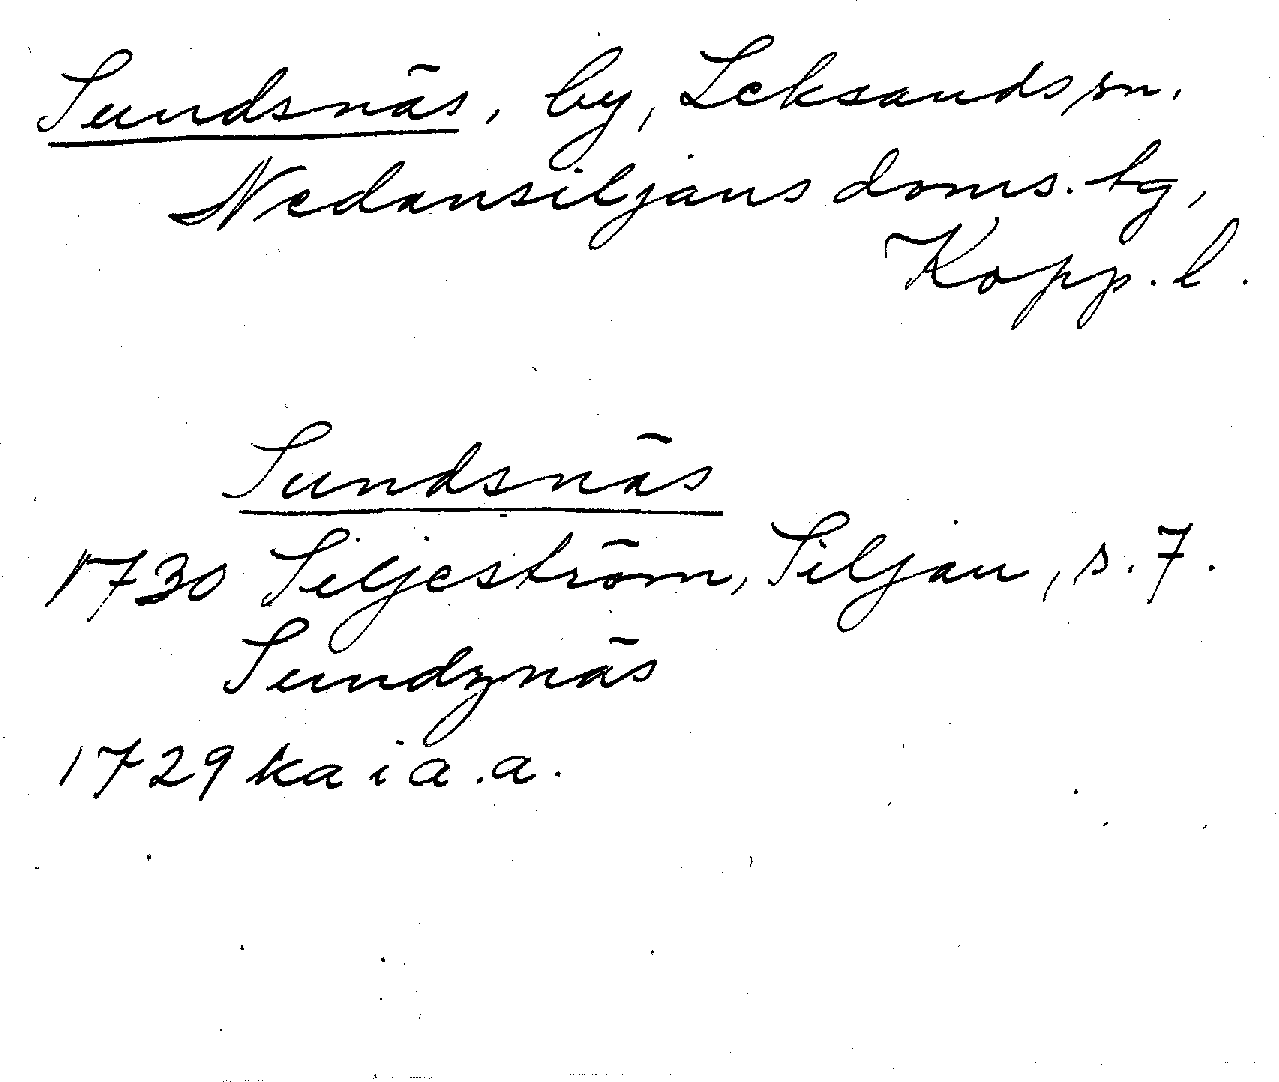 Sundsnäs, by, Leksands sn.
Nedansiljans doms. tg,
Kopp. l.
Sundsnäs
1730 Siljeström, Siljan, s. 7.
Sundznäs
1729 ka i a. a.